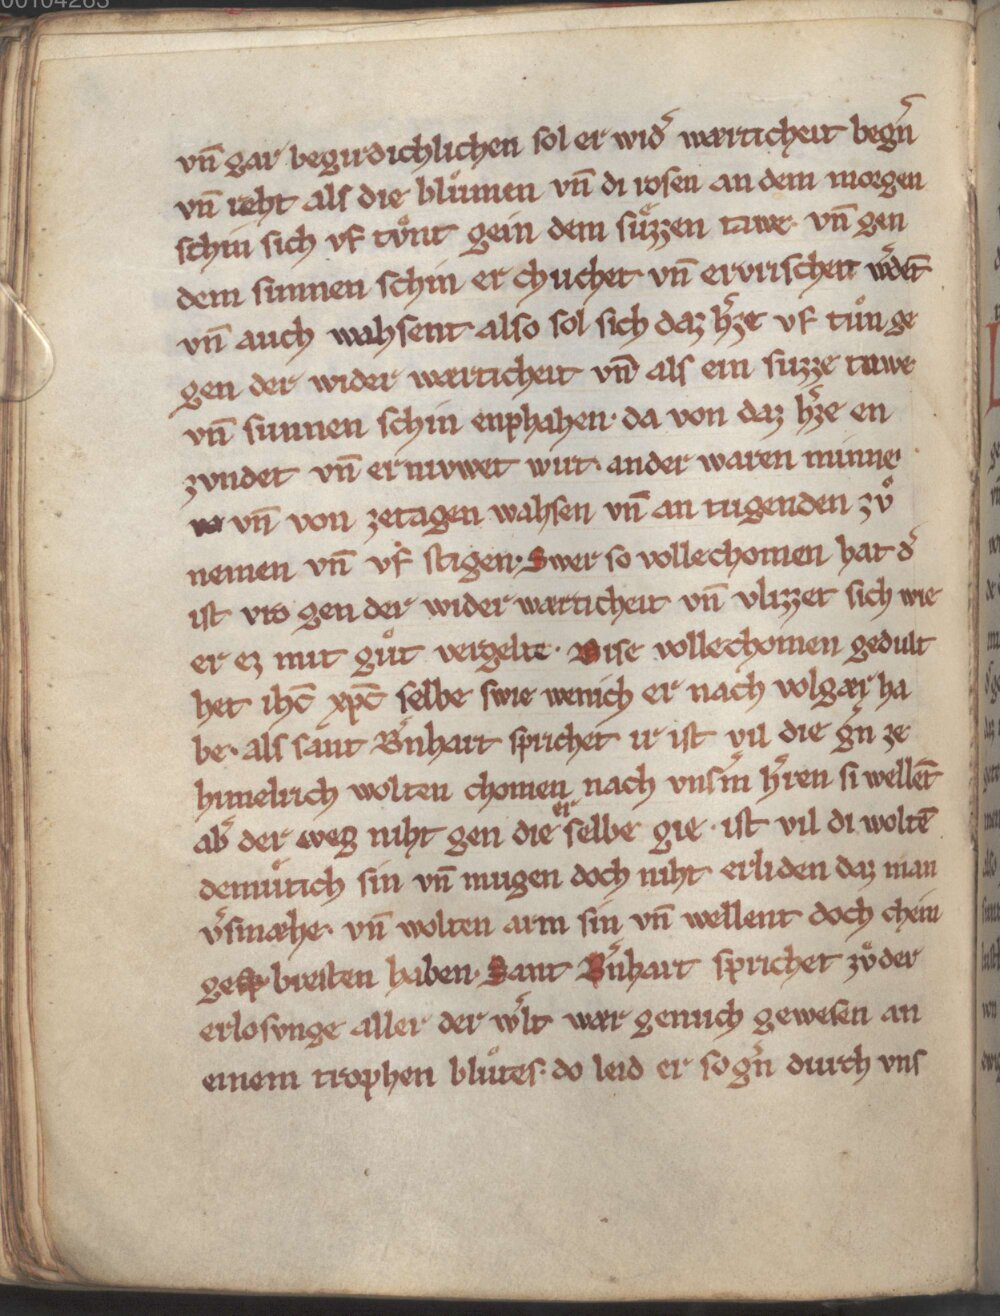 00104263
vn̄ gar begirdichlichen sol er wid᷑ wærticheit beg᷑n
vn̄ reht als die blůmen vn̄ di rosen an dem morgen
schin sich vf tv̊nt gein dem sůzzen tawe· vn̄ gen
dem sunnen schin er chuchet vn̄ ervrischett w᷑dent̄
vn̄ auch wahsent also sol sich daz h᷑ze vf tůn ge
gen der wider wærticheit vn̄ als ein suzze tawe
vn̄ sunnen schin enphahen· da von daz h᷑ze en
zvndet vn̄ er nivwet wirt· ander waren minne
vn̄ von zetagen wahsen vn̄ an tugenden zv̊
nemen vn̄ vf stigen· Swer so vollechomen hat d᷑
ist vro gen der wider wærticheit vn̄ vlizzet sich wie
er ez mit gůt vergelte· Dise vollechomen gedult
het ihc̄ xpc̄ selbe swie wenich er nach volgær ha
be· als sant B᷑nhart sprichet ir ist vil die g᷑n ze
himelrich wolten chomen nach vns᷑m h᷑ren si wellent̄
ab᷑ der weg niht gen die er selbe gie· ist vil di woltē
demůtich sin vn̄ mugen doch niht erliden daz man
v᷑smæhe· vn̄ wolten arm sin vn̄ wellent doch chein
breiten haben· Sant B᷑nhart sprichet zv̊ der
erlosvnge aller der w᷑lt wær genuch gewesen an
einem trophen blůtes· do leid er so g᷑n durch vns